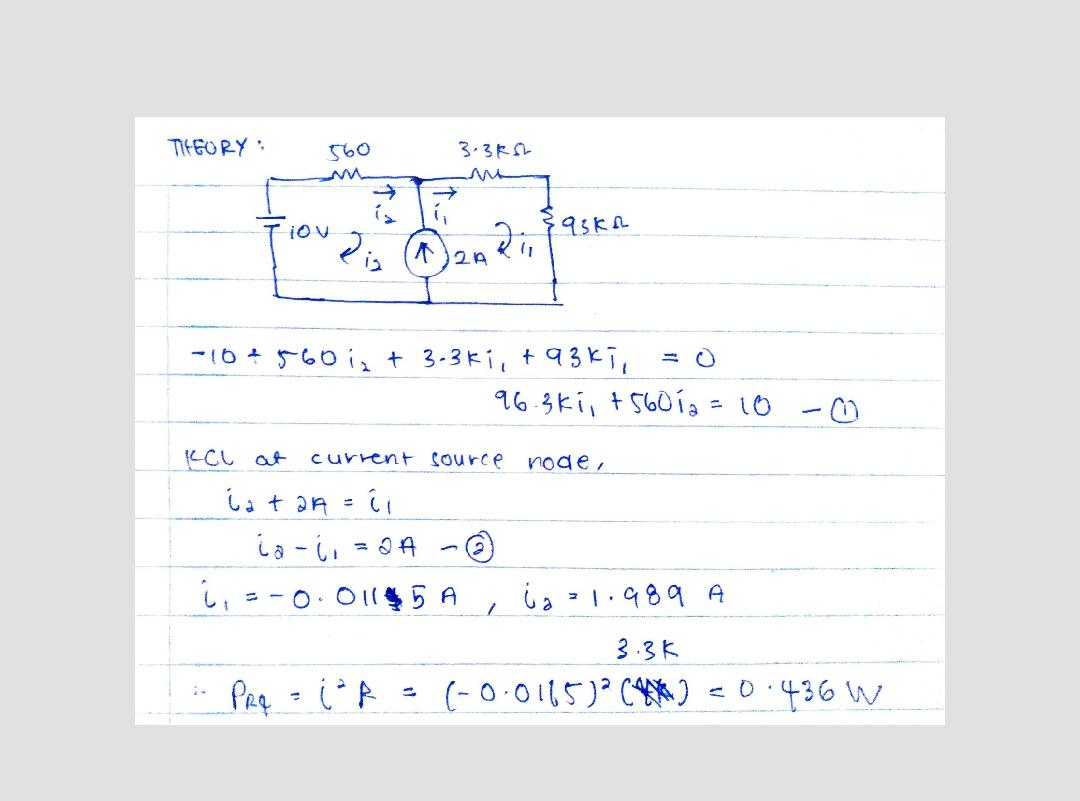 THEORY :
560
3.3KΩ
i₂
i₁
10V
i₂
2A
i₁
93KΩ
-10 + 560 i₂ + 3.3Ki₁ + 93Ki₁ = 0
96.3Ki₁ + 560i₂ = 10 - ①
KCL at current source node,
i₂ + 2A = i₁
i₂ - i₁ = 2A - ②
i₁ = -0.0115 A , i₂ = 1.989 A
3.3K
∴ PR4 = i²R = (-0.0115)² ( ) = 0.436 W